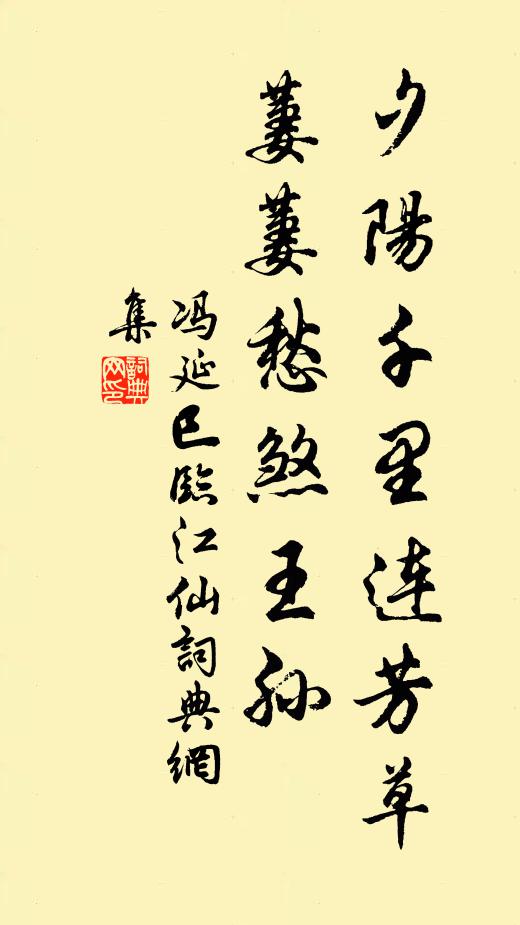 夕陽千里連芳草
萋萋愁煞王孙
冯延巳臨江仙詞典網
集
詞典網印